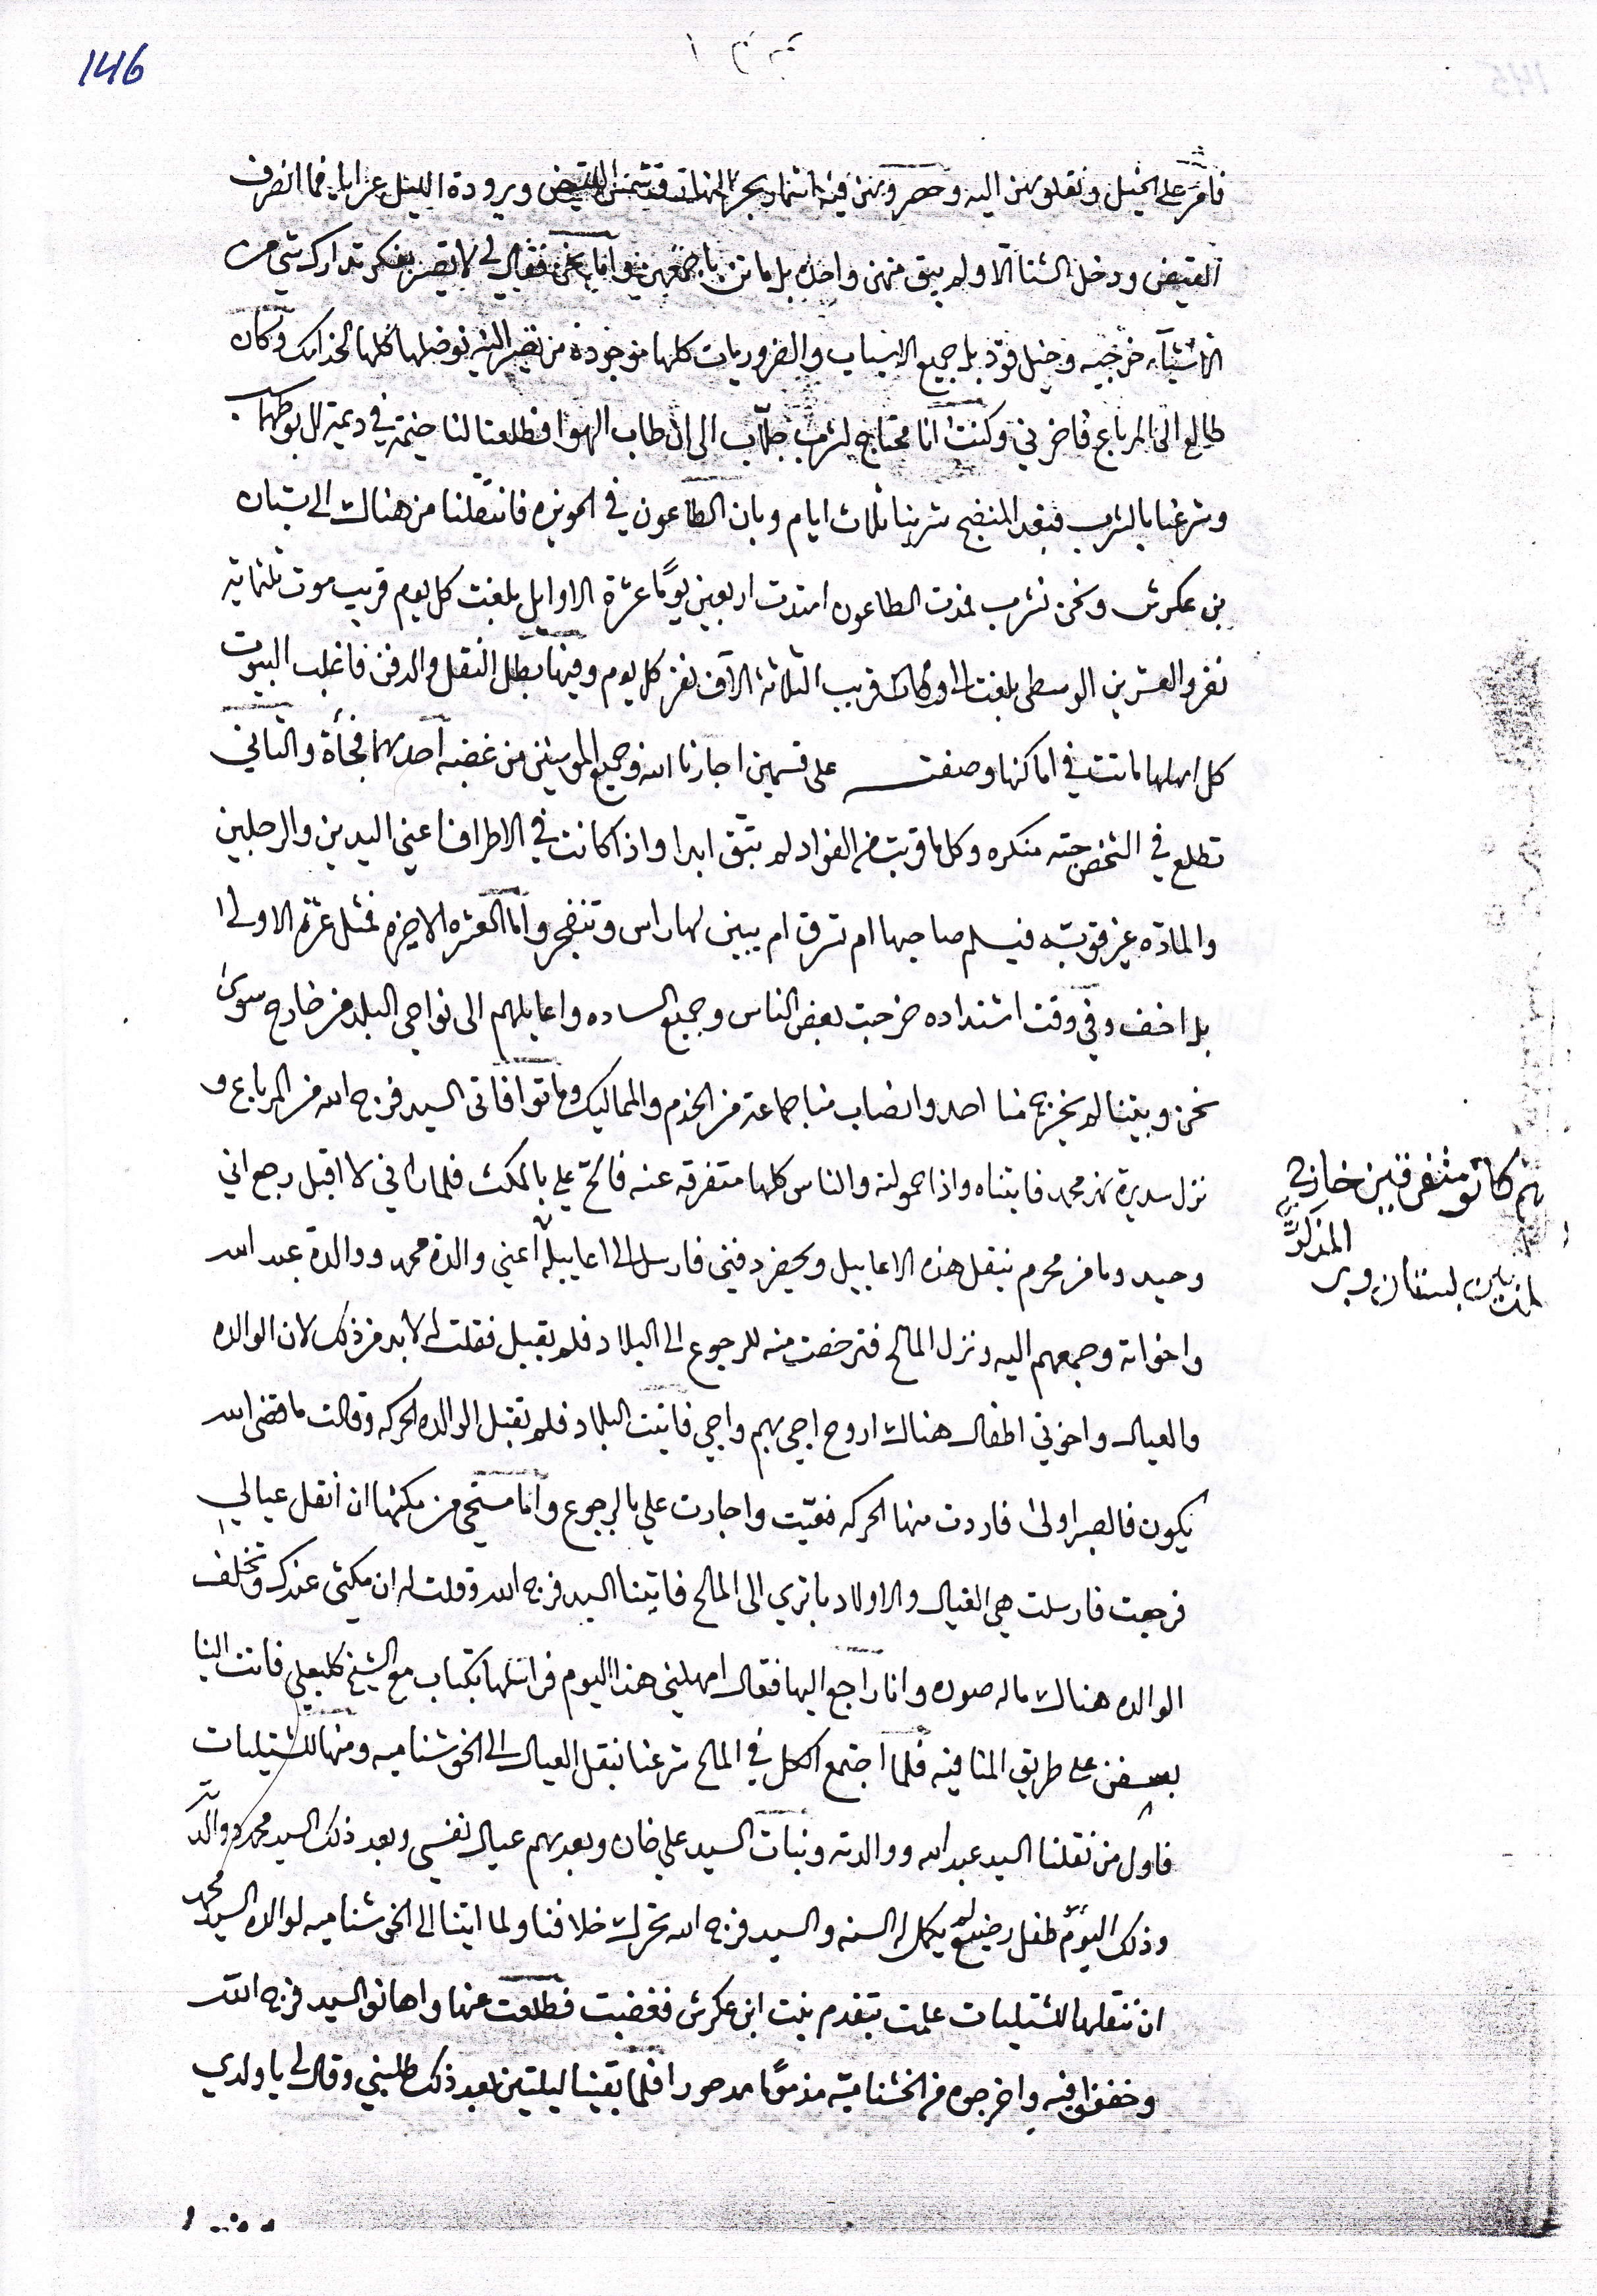 146
فامر على الخيل ونقلوهن اليه وحصروهن فيه انتماد بحر النهار وشمس القيض وبرودة الليل عرايا فما انصرف
القيض ودخل الشتا الا ولم يبق منهن واحده بل ماتن باجمعهن واما نحن فقال لي لا تصير بفكر تدارك شي من
الاشياء خرجيه وخيل قود بل جميع الاسباب والضروريات كلها موجوده من تصير اليه نوصلها كلها لخدامك وكان
طالع الى المرباع فاخرني وكنت انا محتاج لشرب جلاب الى ان طاب الهوا فطلعنا لنا خيمة في ديمة ال بوطهاب
وشرعنا بالشرب فبعد المنضج شربنا ثلاث ايام وبان الطاعون في الحويزه فانتقلنا من هناك الى بستان
بن عكرش ونحن نشرب فمدت الطاعون امتدت اربعين يوما عشرة الاوايل بلغت كل يوم قريب موت ثلثماية
نفر والعشرين الوسطى بلغت قريب الثلاثة الاف نفر كل يوم وفيها بطل النقل والدفن فاغلب البيوت
كل اهلها ماتت في اماكنها وصفت على قسمين اجارنا الله وجميع المومنين من غضبه احدهما فجأة والثاني
تطلع في الشخص حبته منكره وكل ما قربت من الفواد لم تبق ابدا واذا كانت في الاطراف اعني اليدين والرجلين
والمادة غير قويه فيسلم صاحبها ام تزرق ام يبين لها راس وتنفجر واما العشره الاخيره فمثل عشرة الاولى
بل اخف وفي وقت اشتداده خرجت بعض الناس وجميع الساده واعايلهم الى نواحي البلد من خارج سوى
نحن وبيتنا لم يخرج منا احد وانصاب منا جماعة من الخدم والمماليك وماتوا فاتى السيد فرج الله من المرباع و
نزل سديرة نهر محمد فاتيناه واذا حمولته والناس كلها متفرقه عنه فالح علي بالمكث فلما راني لا اقبل رجع اني
وحيد وما من محرم ينقل هذه الاعاييل ويحضر دفني فارسل الى اعاييله اعني والدة محمد ووالدة عبد الله
واخواته وجمعهم اليه ونزل المالح فترخصت منه للرجوع الى البلاد فلم يقبل فقلت له لا بد من ذلك لان الوالده
والعيال واخوتي اطفال هناك اروح اجي بهم واجي فاتيت البلاد فلم تقبل الوالده الحركه وقالت ما قضى الله
يكون فالصبر اولى فاردت منها الحركه فعيت واجادت علي بالرجوع وانا مستحي من مكثها ان انقل عيالي
فرجعت فارسلت هي العيال والاولاد باثري الى المالح فاتينا السيد فرج الله وقلت له ان مكثي عندك وتخلف
الوالده هناك ماله صوره وانا راجع اليها فقال امهلني هذا اليوم فراسلها بكتاب مع الشيخ كلبعلي فاتت الينا
بسفن على طريق المنافيه فلما اجتمع الكل في المالح شرعنا بنقل العيال الى الخوشناميه ومنها للشتيليات
فاول من نقلنا السيد عبد الله ووالدته وبنات السيد علي خان وبعدهم عيال نفسي وبعد ذلك السيد محمد ووالدته
وذلك اليوم طفل رضيع لم يكمل له السنه والسيد فرج الله تحرك خلافنا ولما اتينا الى الخوشناميه لوالدة السيد محمد
ان ننقلها للشتيليات علمت بتقدم بنت ابن عكرش فغضبت فطلعت عنها واهانو السيد فرج الله
وخفظو فيه واخرجوه من الخشناميه مذموما مدحورا فلما بقينا ليلتين بعد ذلك طلبني وقال لي يا ولدي
ثم كانو متفرقين خارج
المذكور
بين بستان وبر